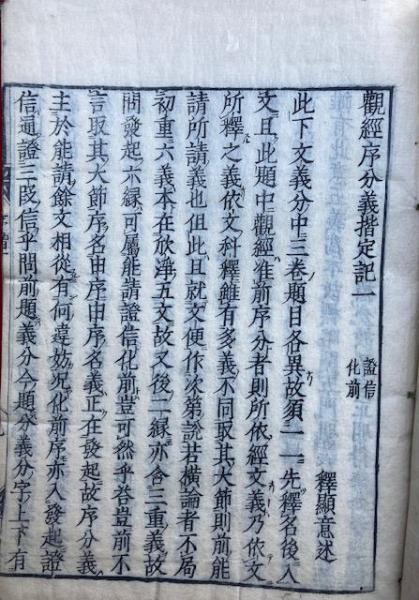 觀經序分義揩定記一
證信
化前
釋顯意述
此下文義分中三卷題目各異故須一一先釋名後入
文且此題中觀經准前序分者則所依經文義乃依文
所釋之義依文科釋雖有多義不同取其大節則前能
請所請義也但此且就文便作次第說若橫論者不局
初重六義本在欣淨五文故又後二緣亦含三重義故
問發起六緣可屬能請證信化前豈可然乎答豈前不
言取其大節序名由序由序名義正在發起故序分義
主於能請餘文相從有何違妨況化前序亦入發起證
信通證三段信乎問前題義分今題分義分字上下有